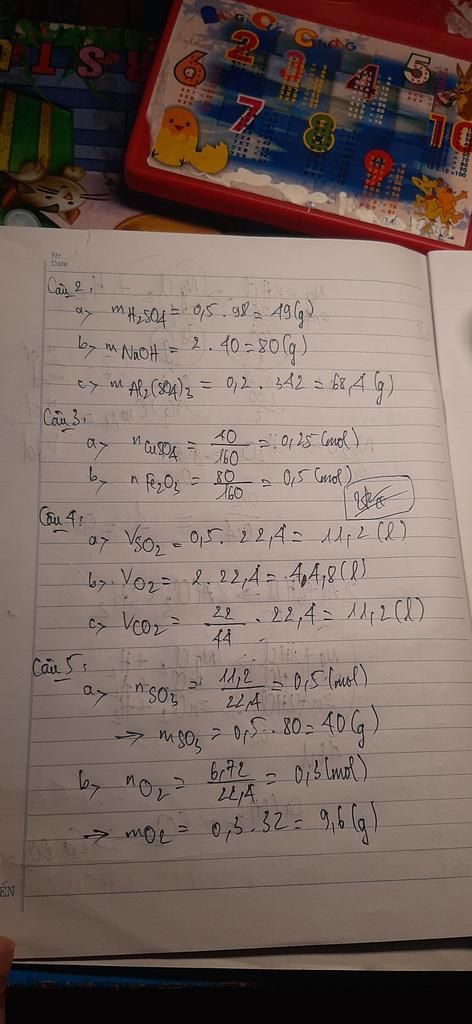 BẢNG CỬU CHƯƠNG
2 3 4 5
6
7 8 9 10
No.
Date
Câu 2:
a> mH2SO4 = 0,5 . 98 = 49 (g)
b> mNaOH = 2 . 40 = 80 (g)
c> mAl2(SO4)3 = 0,2 . 342 = 68,4 (g)
Câu 3:
a> nCuSO4 = 40/160 = 0,25 (mol)
b> nFe2O3 = 80/160 = 0,5 (mol)
Câu 4:
a> VSO2 = 0,5 . 22,4 = 11,2 (l)
b> VO2 = 2 . 22,4 = 44,8 (l)
c> VCO2 = 22/44 . 22,4 = 11,2 (l)
Câu 5:
a> nSO3 = 11,2/22,4 = 0,5 (mol)
→ mSO3 = 0,5 . 80 = 40 (g)
b> nO2 = 6,72/22,4 = 0,3 (mol)
→ mO2 = 0,3 . 32 = 9,6 (g)
ẾN